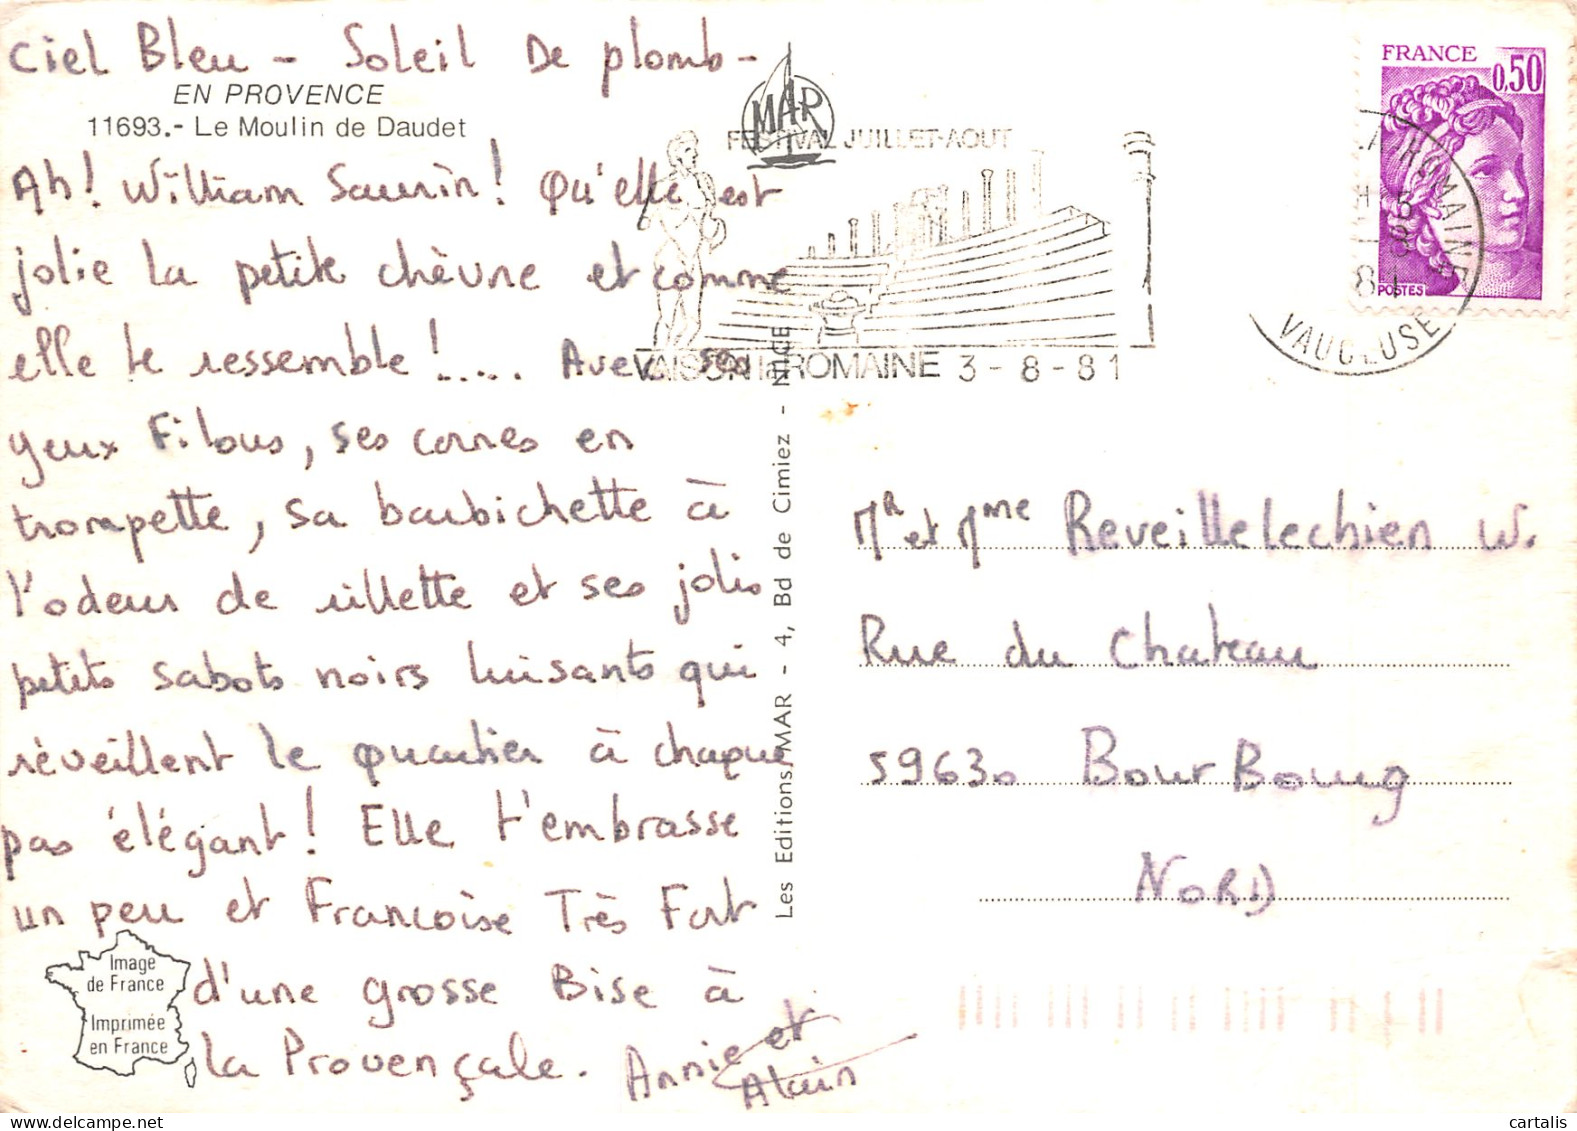 Ciel Bleu - Soleil De plomb -
EN PROVENCE
11693.- Le Moulin de Daudet
Ah! William Saurin! Qu'elle est
jolie la petite chèvre et comme
elle te ressemble !..... Avec ses
yeux Filous, ses cornes en
trompette, sa barbichette à
l'odeur de rillette et ses jolis
petits sabots noirs luisants qui
réveillent le quartier à chaque
pas élégant! Elle t'embrasse
un peu et Francoise Très Fort
d'une grosse Bise à
la Provençale. Annie et
Alain
Image
de France
Imprimée
en France
Les Editions MAR - 4, Bd de Cimiez - NICE
MAR
FESTIVAL JUILLET-AOUT
VAISON la ROMAINE 3-8-81
FRANCE
0,50
POSTES
LA ROMAINE
VAUCLUSE
Mr et Mme Reveillelechien W.
Rue du Chateau
59630 BourBourg
NORD
cartalis